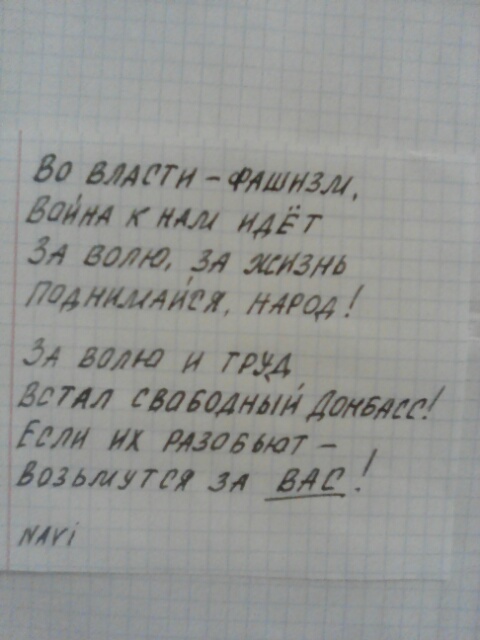 Во власти – фашизм,
Война к нам идёт
За волю, за жизнь
Поднимайся, народ!
За волю и труд
Встал свободный Донбасс!
Если их разобьют –
Возьмутся за ВАС!
NAVi